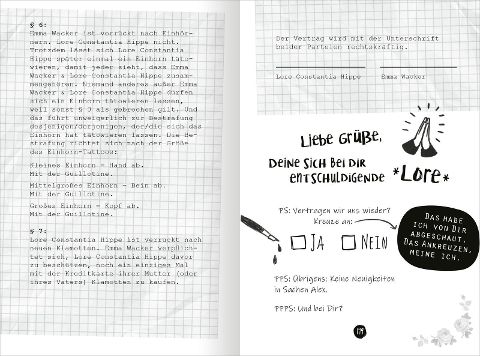 § 6:
Emma Wacker ist verrückt nach Einhör-
nern. Lore Constantia Hippe nicht.
Trotzdem lässt sich Lore Constantia
Hippe später einmal ein Einhorn täto-
wieren, damit jeder sieht, dass Emma
Wacker & Lore Constantia Hippe zusam-
mengehören. Niemand anders außer Emma
Wacker & Lore Constantia Hippe dürfen
sich ein Einhorn tätowieren lassen,
weil sonst § 3 als gebrochen gilt. Und
das führt unweigerlich zur Bestrafung
desjenigen/derjenigen, der/die sich das
Einhorn hat tätowieren lassen. Die Be-
strafung richtet sich nach der Größe
des Einhorn-Tattoos:
Kleines Einhorn = Hand ab.
Mit der Guillotine.
Mittelgroßes Einhorn = Bein ab.
Mit der Guillotine.
Großes Einhorn = Kopf ab.
Mit der Guillotine.
§ 7:
Lore Constantia Hippe ist verrückt nach
neuen Klamotten. Emma Wacker verpflich-
tet sich, Lore Constantia Hippe davor
zu beschützen, noch ein einziges Mal
mit der Kreditkarte ihrer Mutter (oder
ihres Vaters) Klamotten zu kaufen.
Der Vertrag wird mit der Unterschrift
beider Parteien rechtskräftig.
Lore Constantia Hippe Emma Wacker
Liebe Grüße,
Deine sich bei dir
entschuldigende *Lore*
PS: Vertragen wir uns wieder?
Kreuze an:
Ja Nein
Das habe
ich von dir
abgeschaut.
Das Ankreuzen,
meine ich.
PPS: Übrigens: Keine Neuigkeiten
in Sachen Alex.
PPPS: Und bei Dir?